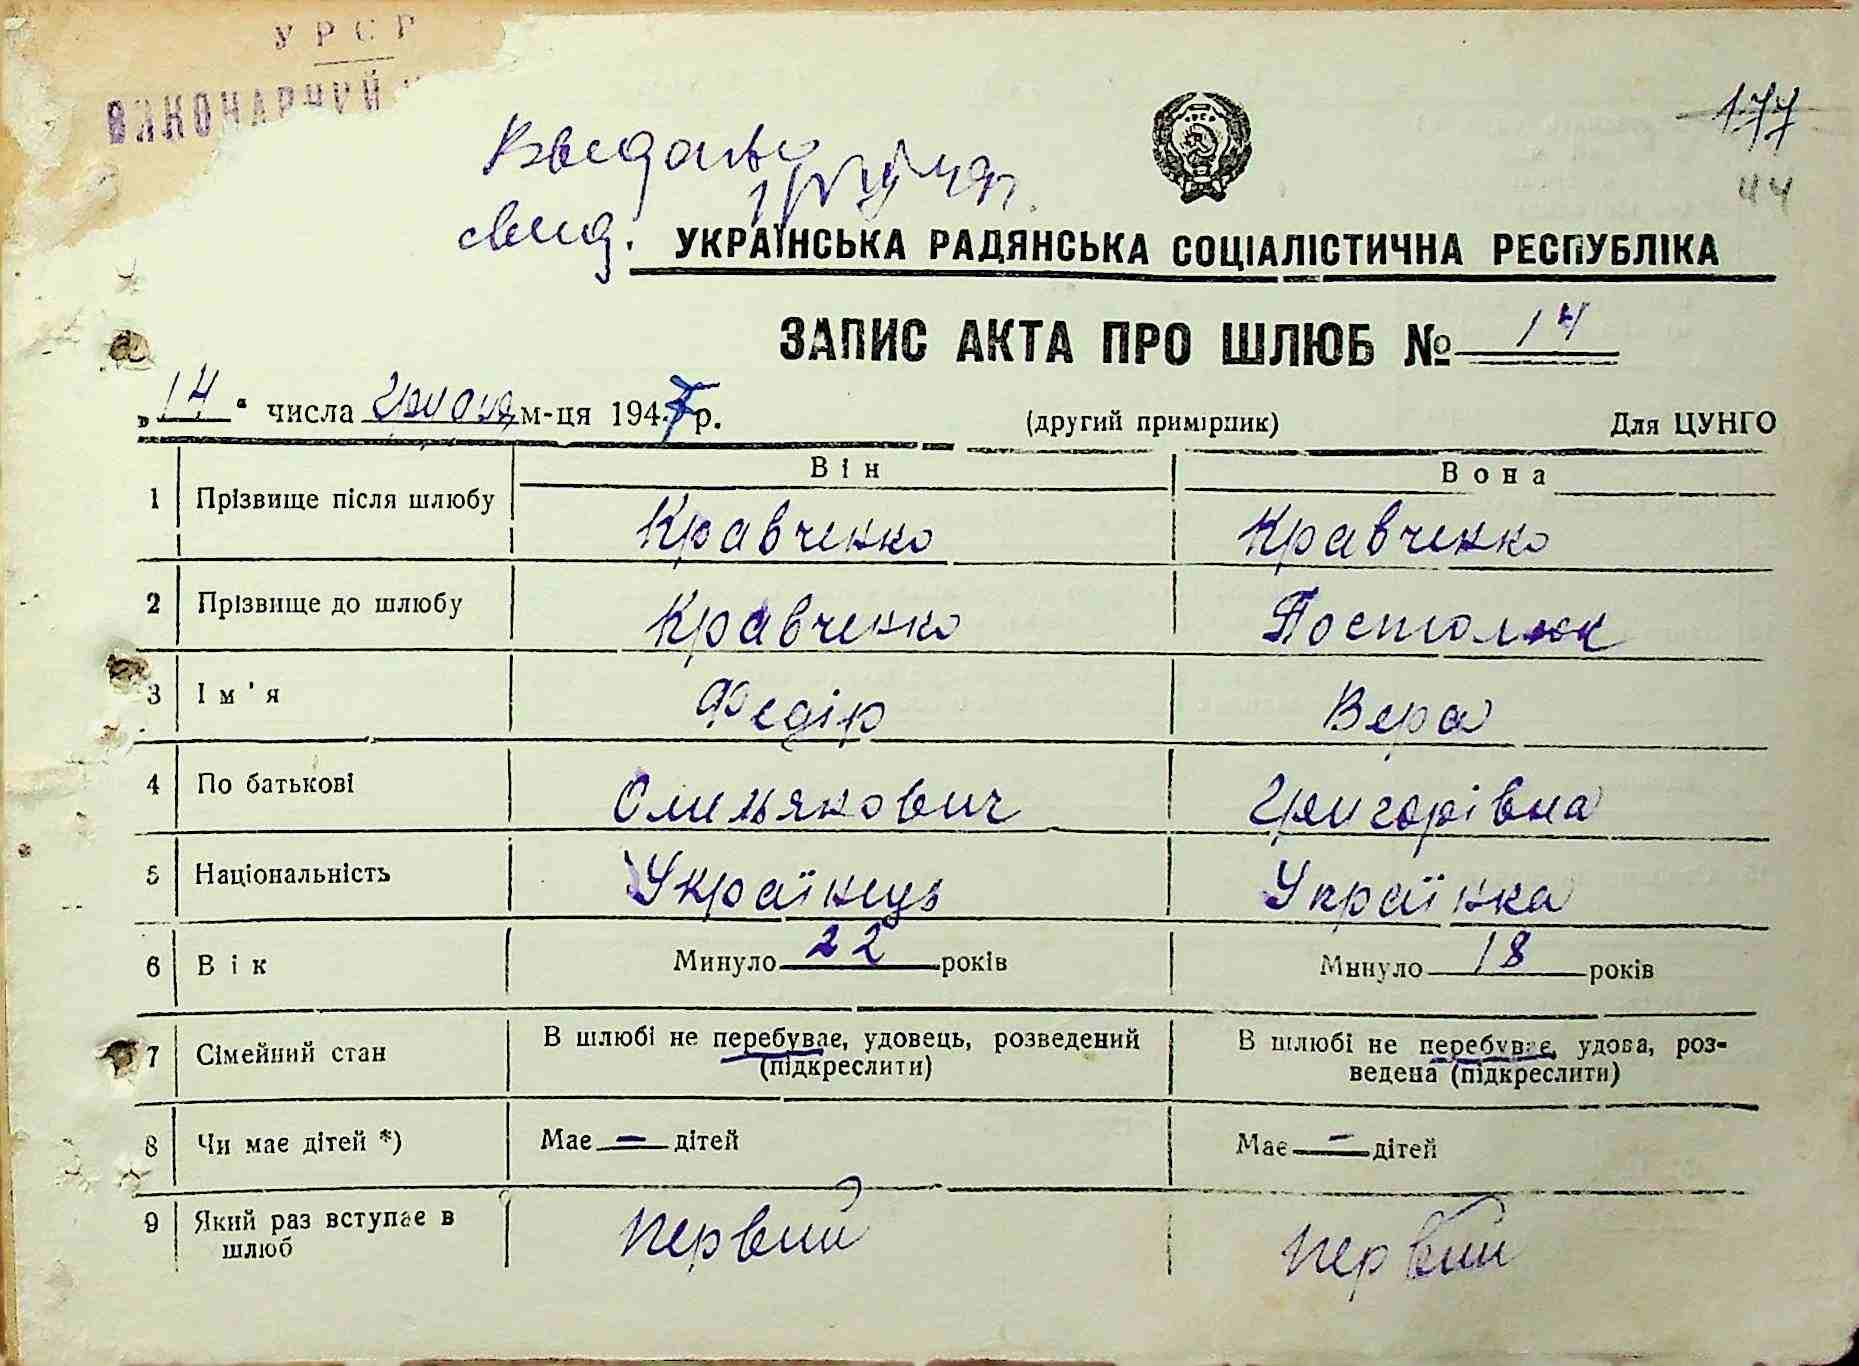 УРСР
177
44
свид.
УКРАЇНСЬКА РАДЯНСЬКА СОЦІАЛІСТИЧНА РЕСПУБЛІКА
ЗАПИС АКТА ПРО ШЛЮБ № 14
„14“ числа м-ця 1947 р. (другий примірник) Для ЦУНГО
Він Вона
1 Прізвище після шлюбу Кравченко Кравченко
2 Прізвище до шлюбу Кравченко Постолюк
3 Ім'я Федір Вера
4 По батькові Омильянович Григорівна
5 Національність Українець Українка
6 Вік Минуло 22 років Минуло 18 років
7 Сімейний стан В шлюбі не перебуває, удовець, розведений (підкреслити) В шлюбі не перебуває, удова, роз-
ведена (підкреслити)
8 Чи має дітей *) Має — дітей Має — дітей
9 Який раз вступає в шлюб первий первий